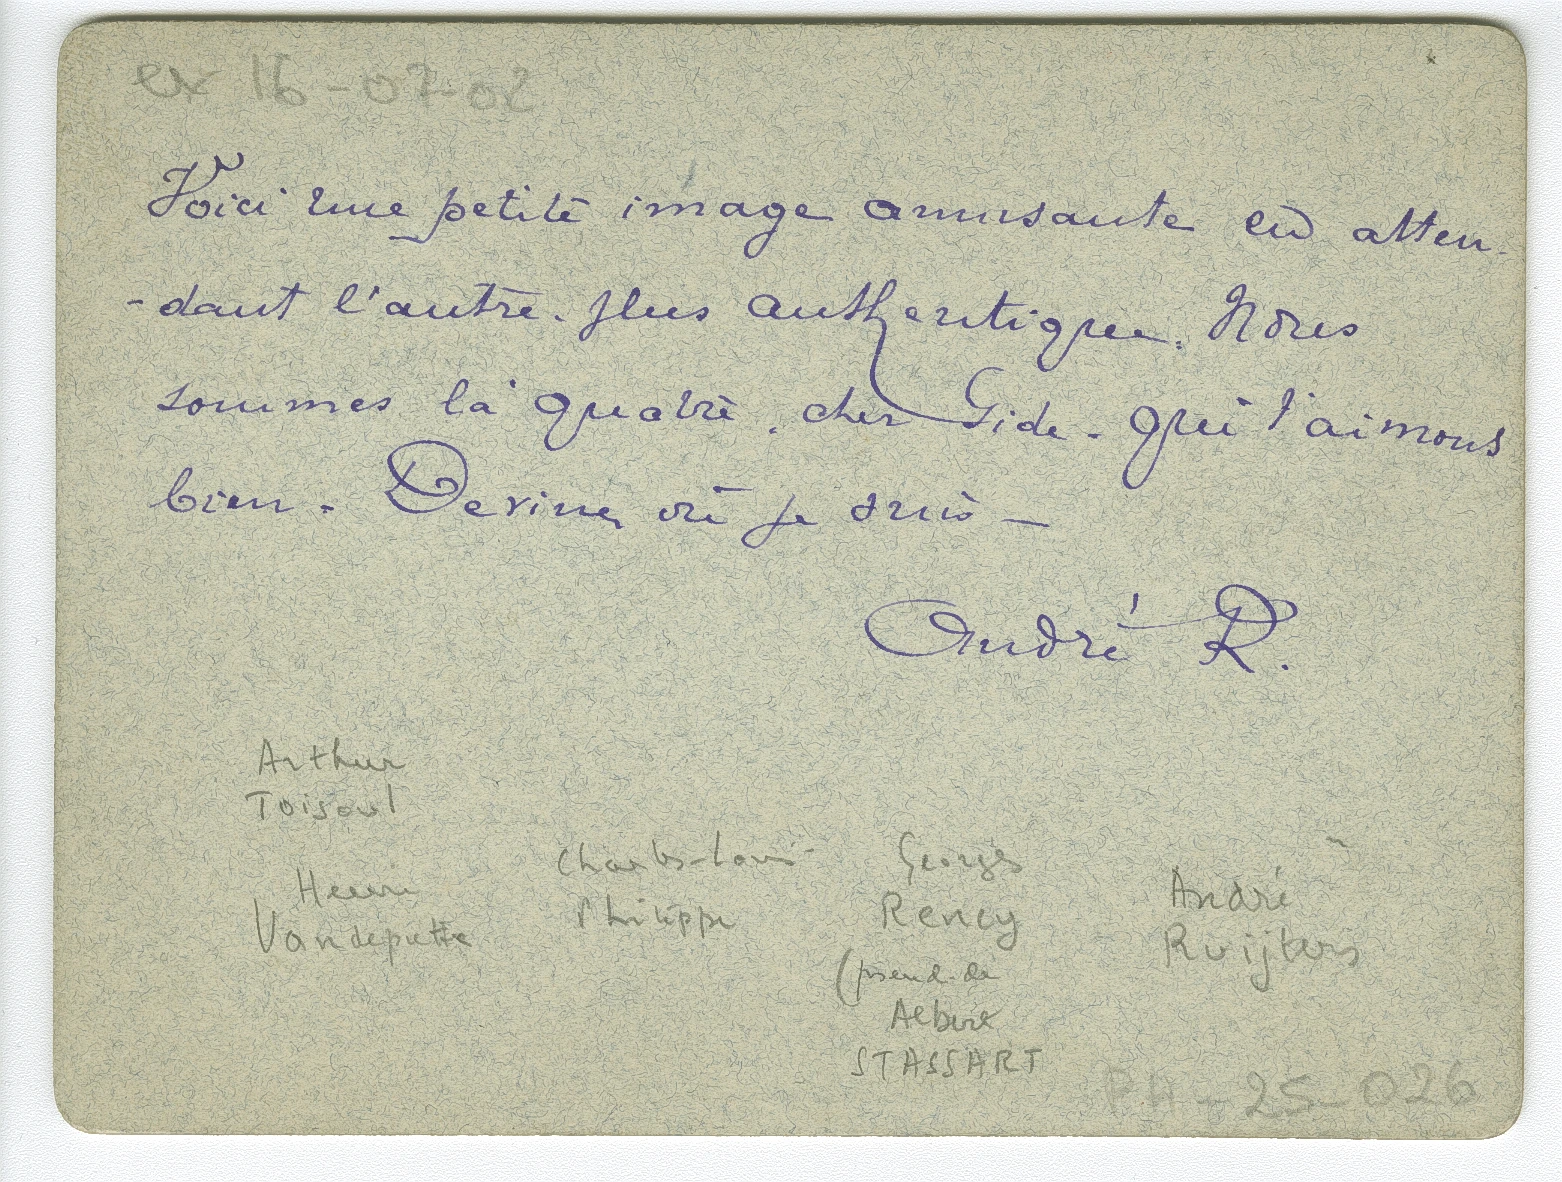 ex 16-07-02
Voici une petite image amusante en atten-
-dant l'autre, plus authentique. Nous
sommes là quatre, cher Gide, qui t'aimons
bien. Devine où je suis —
André R.
Arthur
Toisoul
Henri
Vandeputte
Charles-Louis
Philippe
Georges
Rency
(pseud. de
Albert
STASSART
André
Ruijters
PH-25-026